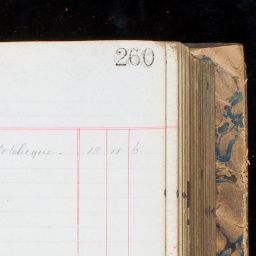 260
Cheque 12 11 6